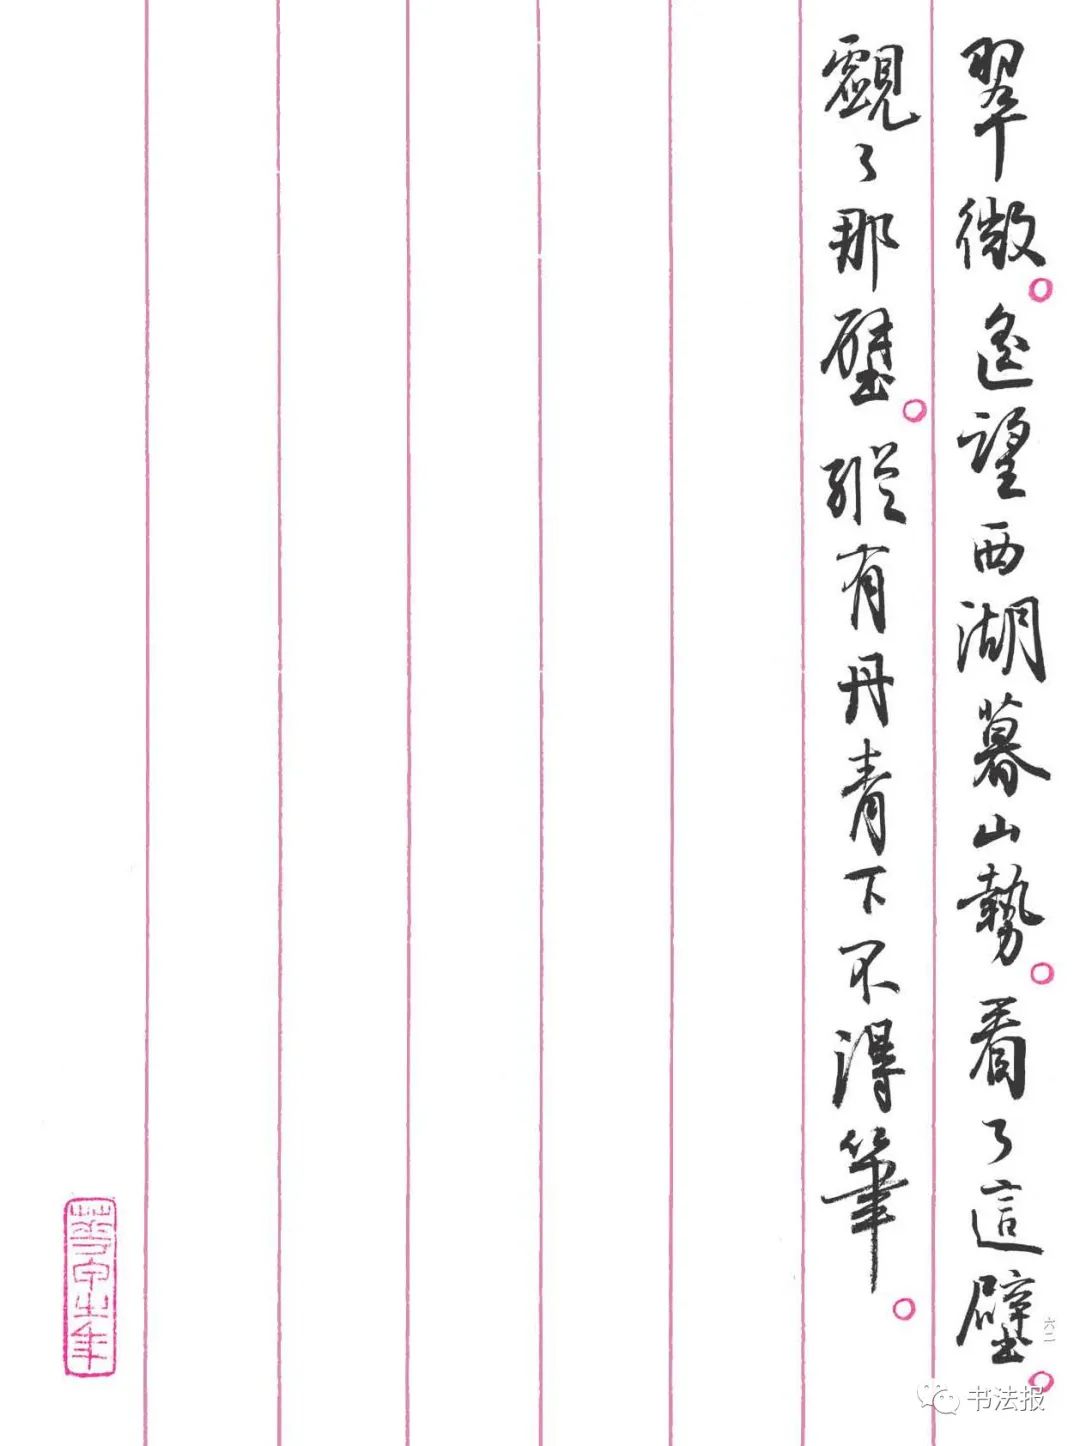 翠微。遙望西湖暮山勢。看了這壁。
覷了那壁。縱有丹青下不得筆。
六二
书法报